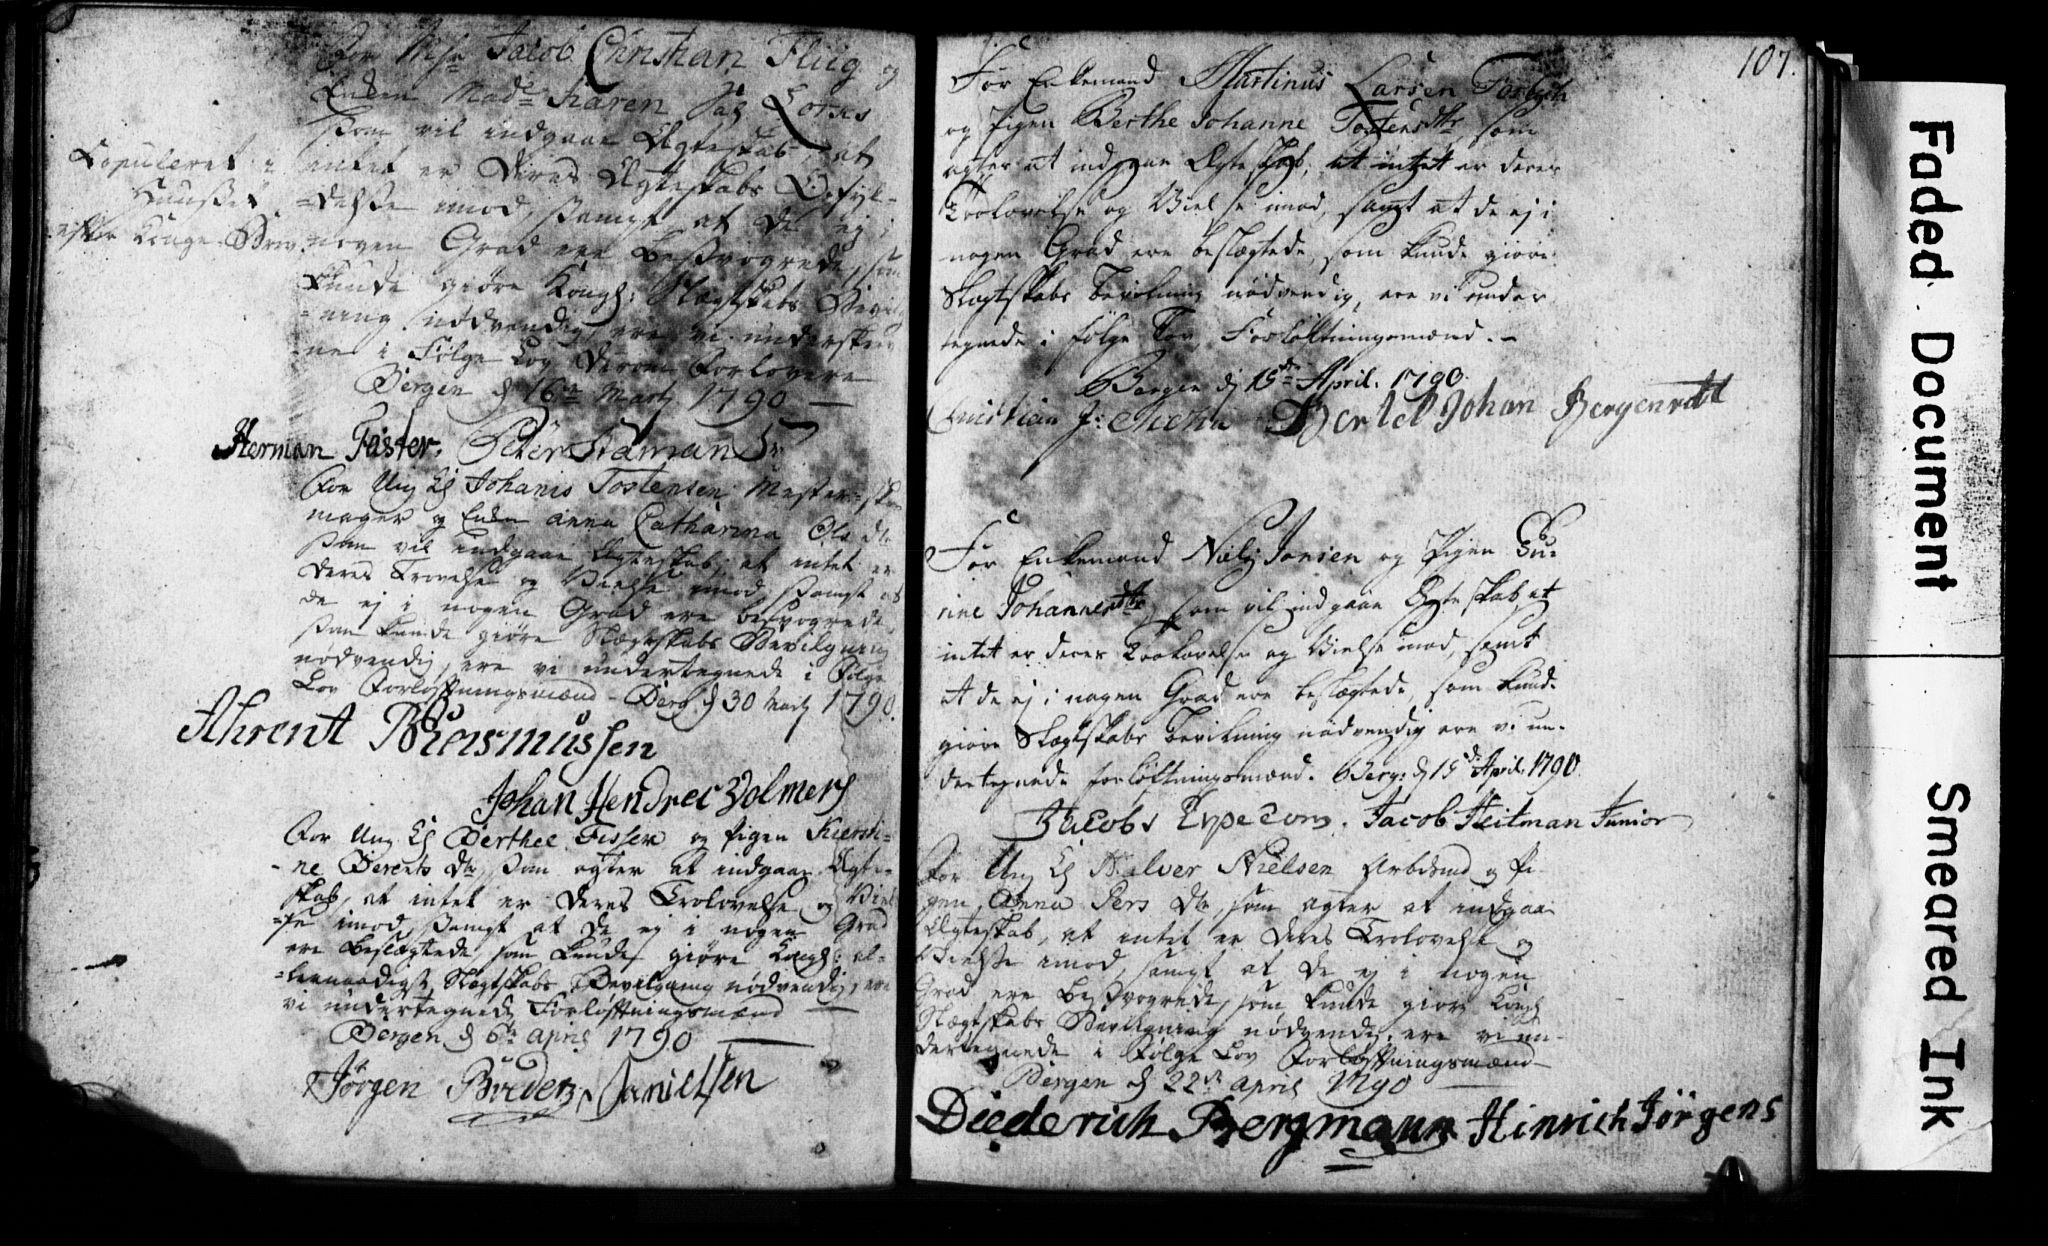 For Msr Jacob Christian Fliig og
Enken Made Karen Sal. Lorns
som vil indgaae Ægteskab, at
intet er Deres Ægteskabs Opfyl-
=delse imod, samt at De ej i
nogen Grad ere besvogrede, som
kunde giøre Kongl: Slægtskabs Bevil
=ning nødvendig, ere vi underskrev
ne i Følge Lov Deres Forlovere
Bergen d 16de Marti 1790
Copuleret i
Huuset
efter Konge Brev.
Herman Faster. Peter Ståman Sr
For Ung Kl Johanis Tostensen Mester-sko
mager og Enken Anna Catharina Ols dr
som vil indgaae Ægteskab, at intet er
Deres Trovelse og Vielse imod, samt at
de ej i nogen Grad ere besvogrede,
som kunde giøre Slægtskabs Bevilgning
nødvendig, ere vi undertegnede i Følge
Lov Forløftningsmænd – Berg. d 30 Marti 1790.
Ahrent Rasmussen
Johan Hendrec Volmers
For Ung Kl Berthel Fisser og Pigen Kiersti-
-ne Berents dr, som agter at indgaae Ægte-
skab, at intet er Deres Trolovelse og Viel
=se imod, samt at de ej i nogen Grad
ere beslægtede, som kunde giøre Kongl: al-
=lernaadigst Slægtskabs Bevilgning nødvendig, ere
vi undertegnede Forløftningsmænd
Bergen d 6te April 1790
Jørgen Danielssen
107.
For Enkemand Martinus Larsen
og Pigen Berthe Johanne Tostensdtr, som
agter at indgaae Ægteskab, at intet er deres
Trolovelse og Vielse imod, samt at de ej i
nogen Grad ere beslægtede, som kunde giøre
Slægtskabs Bevilning nødvendig, ere vi under
tegnede i følge Lov Forløftningsmænd. –
Bergen d 15de April. 1790.
Christian J: Bertel Johan Bergenrett
For Enkemand Niels Jonsen og Pigen Gu-
rine Johannesdtr, som vil indgaae Ægteskab at
intet er deres Trolovelse og Vielse imod, samt
at de ej i nogen Grad ere beslægtede, som kunde
giøre Slægtskabs Bevilning nødvendig ere vi un-
dertegnede forløftningsmænd. Berg: d 15de April. 1790
Jacob Jacob Heitman Junior
For Ung Kl Halver Nielsen Arbdsmd og Pi-
gen, Anna Pers dr, som agter at indgaae
Ægteskab, at intet er Deres Trolovelse og
Vielse imod, samt at De ej i nogen
Grad ere besvogrede, som kunde giøre Kongl
Slægtskabs Bevilgning nødvendig, ere vi un-
dertegnede i Følge Lov Forløftningsmænd
Bergen d 22de April 1790
Diederich Bergmann Hinrich Jørgens
Faded Document
Smeared Ink